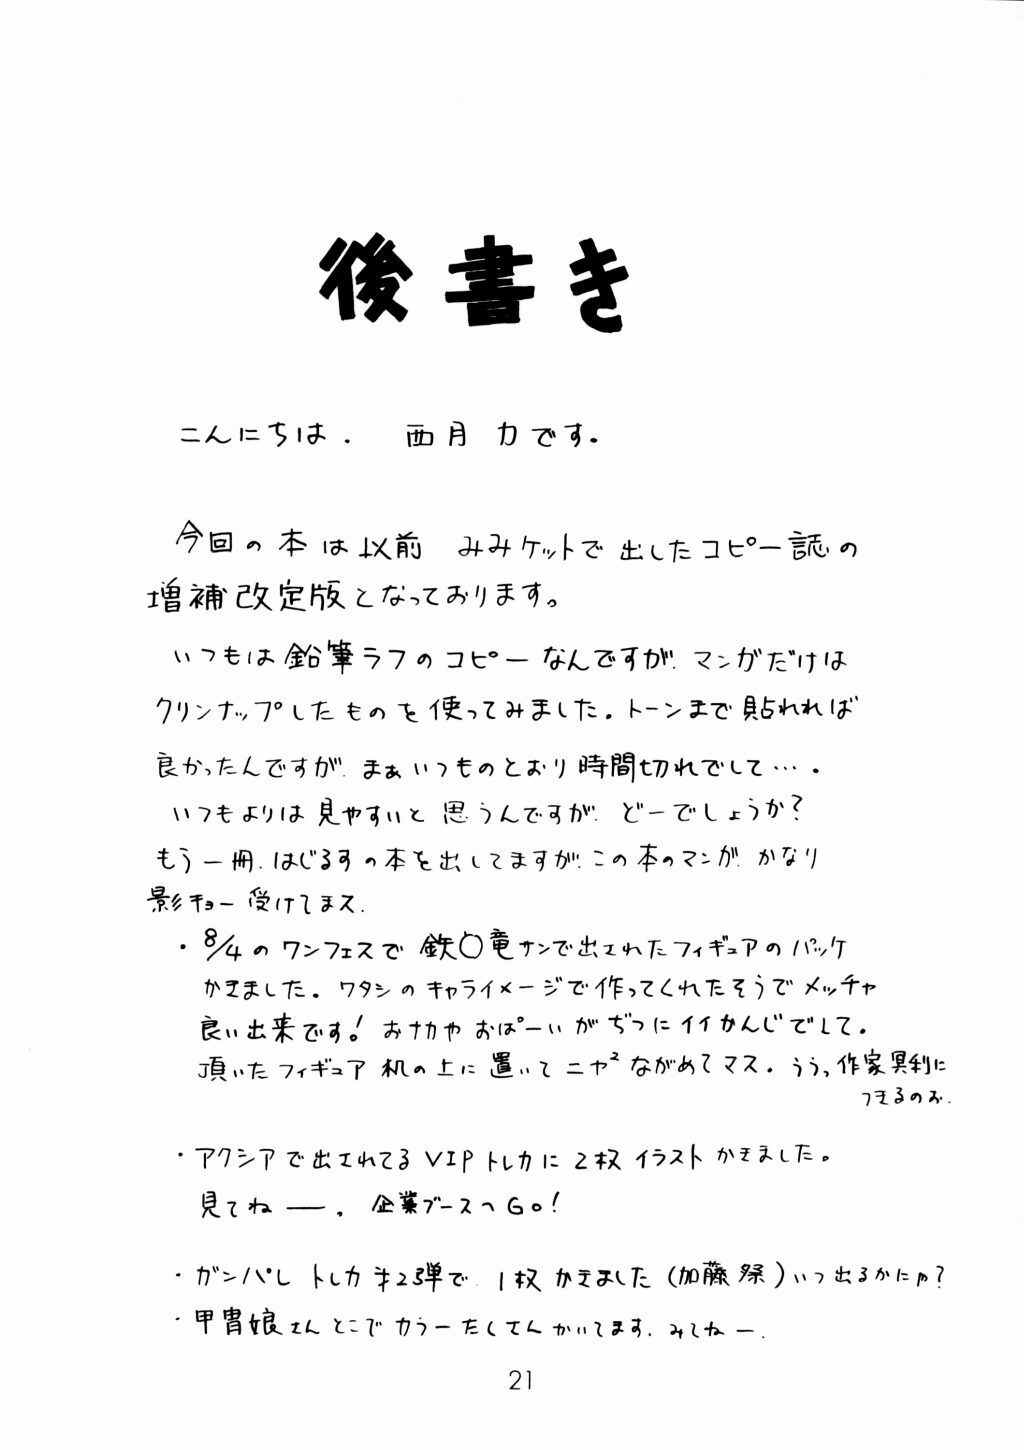 後書き
こんにちは. 西月 力です。
今回の本は以前 みみケットで出したコピー誌の
増補改定版となっております。
いつもは鉛筆ラフのコピーなんですが、マンガだけは
クリンナップしたものを使ってみました。トーンまで貼れれば
良かったんですが、まぁいつものとおり時間切れでして…．
いつもよりは見やすいと思うんですが、どーでしょうか？
もう一冊、はじるすの本を出してますが、この本のマンガ、かなり
影キョー受けてマス.
・8/4のワンフェスで鉄〇竜サンで出されたフィギュアのパッケ
かきました。ワタシのキャライメージで作ってくれたそうでメッチャ
良い出来です！おナカやおぱーいがぢつにイイかんじでして。
頂いたフィギュア机の上に置いてニヤ²ながめてマス。ううっ作家冥利に
つきるのぉ.
・アクシアで出されてるVIPトレカに2枚イラストかきました。
見てねー. 企業ブースへGo！
・ガンパレトレカ㐧2弾で、1枚かきました(加藤祭)いつ出るかにゃ？
・甲冑娘さんとこでカラーたくさんかいてます、みてねー.
21